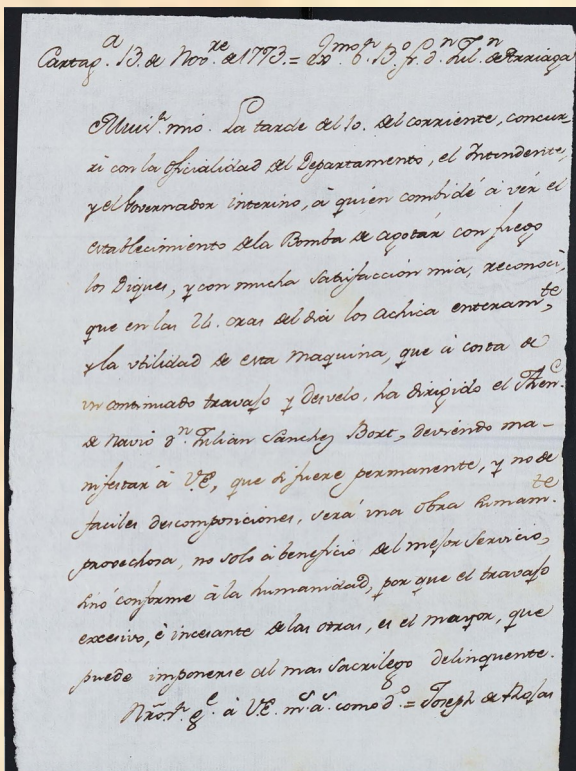 Cartag.ª 13. de Nov.re de 1773. = Exmo. S.r B.º fr. d.n Jul.n de Arriaga
Mui S.r mio. La tarde del 10. del corriente, concur-
rí con la oficialidad del Departamento, el Intendente,
y el Governador interino, à quien combidé à vér el
establecimiento dela Bomba de agotár con fuego
los Diques, y con mucha satisfacción mia, reconocí,
que en las 24. oras del dia los achica enteram.te,
y la utilidad de esta Maquina, que à costa de
un continuado travajo y desvelo, ha dirigido el Then.e
de Navio d.n Julian Sanchez Bort, deviendo ma-
nifestár à V.E, que si fuere permanente, y no de
faciles descomposiciones, será una obra sumam.te
provechosa, no solo à beneficio del mejor servicio,
sinó conforme à la humanidad, por que el travajo
excesivo, è incesante de las otras, es el mayor, que
puede imponerse al mas sacrilego delinquente.
Nro. S.r g.e à V.E. m.s a.s como d.º = Joseph de Rojas